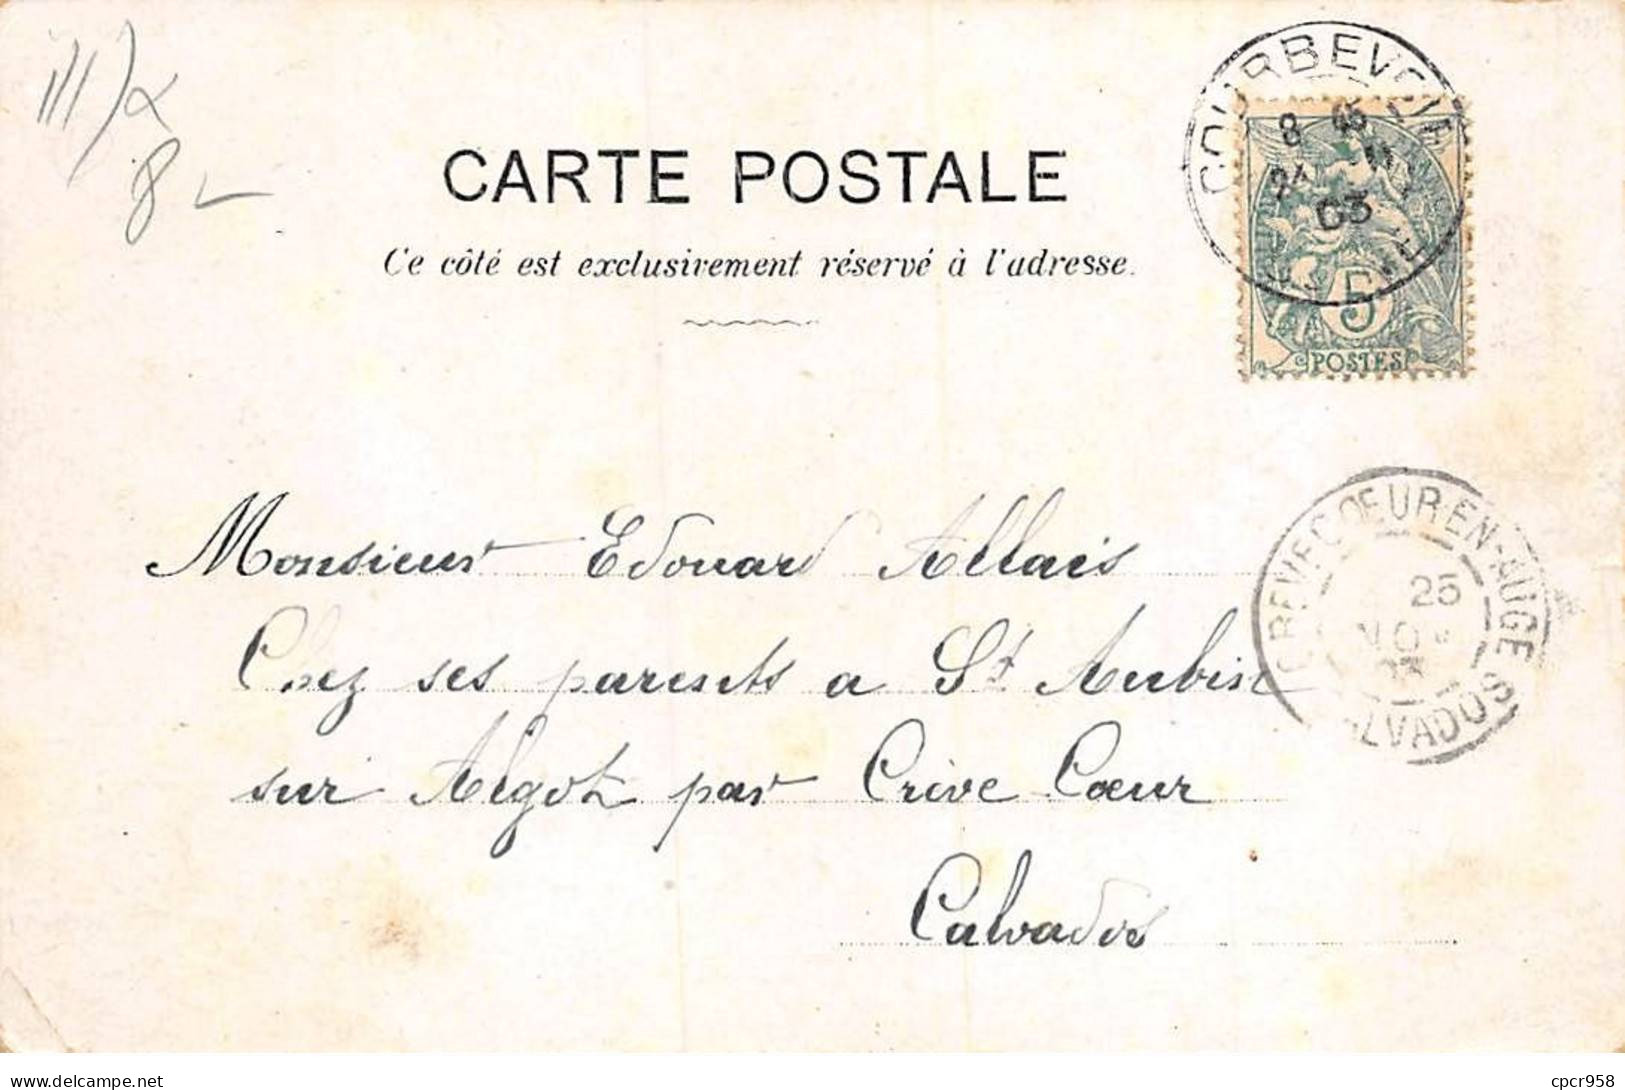 III)α
8 –
CARTE POSTALE
Ce côté est exclusivement réservé à l'adresse.
COURBEVOIE
8
24 11
03
5
POSTES
Monsieur Edouard Allais
Chez ses parents a St Aubin
sur Algot par Crive Cœur
Calvados
CREVECŒUR-EN-AUGE
25
NOV
03
CALVADOS
delcampe.net
cpcr958